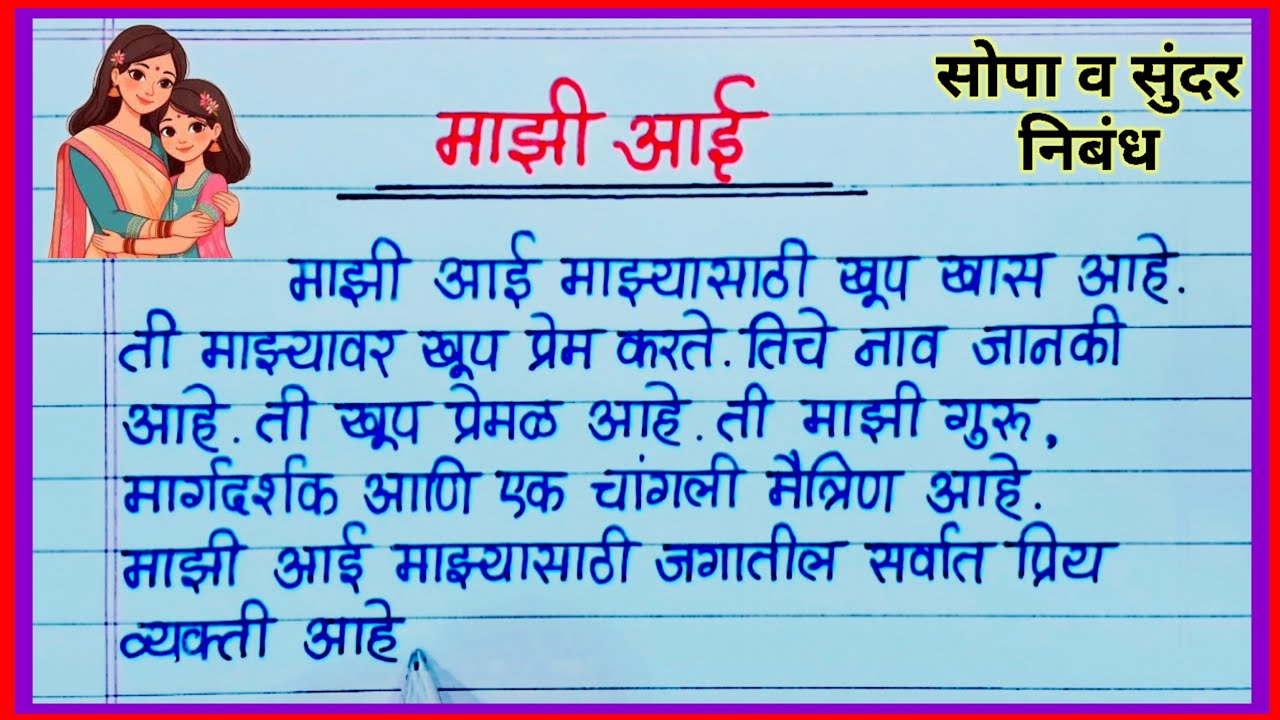 सोपा व सुंदर
निबंध
माझी आई
माझी आई माझ्यासाठी खूप खास आहे.
ती माझ्यावर खूप प्रेम करते. तिचे नाव जानकी
आहे. ती खूप प्रेमळ आहे. ती माझी गुरू,
मार्गदर्शक आणि एक चांगली मैत्रिण आहे.
माझी आई माझ्यासाठी जगातील सर्वात प्रिय
व्यक्ती आहे.